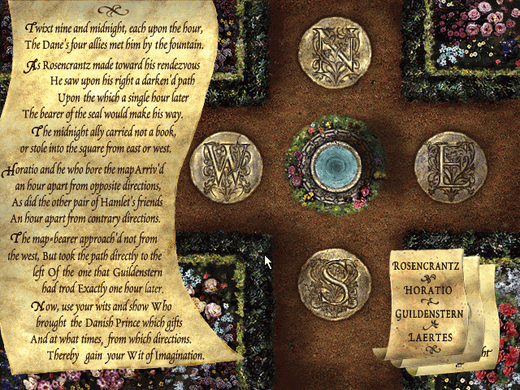 Twixt nine and midnight, each upon the hour,
The Dane's four allies met him by the fountain.
As Rosencrantz made toward his rendezvous
He saw upon his right a darken'd path
Upon the which a single hour later
The bearer of the seal would make his way.
The midnight ally carried not a book,
or stole into the square from east or west.
Horatio and he who bore the map Arriv'd
an hour apart from opposite directions,
As did the other pair of Hamlet's friends
An hour apart from contrary directions.
The map-bearer approach'd not from
the west, But took the path directly to the
left Of the one that Guildenstern
had trod Exactly one hour later.
Now, use your wits and show Who
brought the Danish Prince which gifts
And at what times, from which directions.
Thereby gain your Wit of Imagination.
N
W
E
S
ROSENCRANTZ
HORATIO
GUILDENSTERN
LAERTES